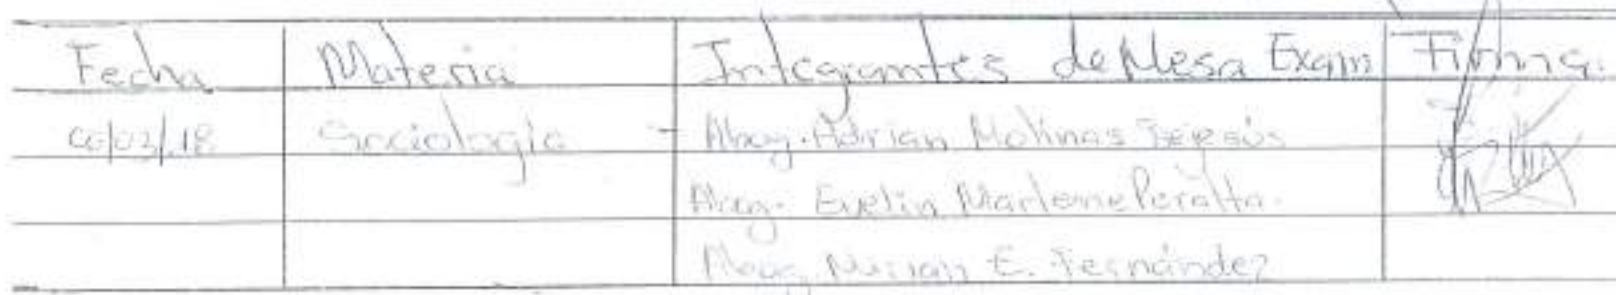 Fecha Materia Integrantes de Mesa Exam Firma.
/03/18 Sociologia - Abog. Adrian Molinas
Abog. Evelin Marlene Peralta.
Abog. Mirian E. Fernández